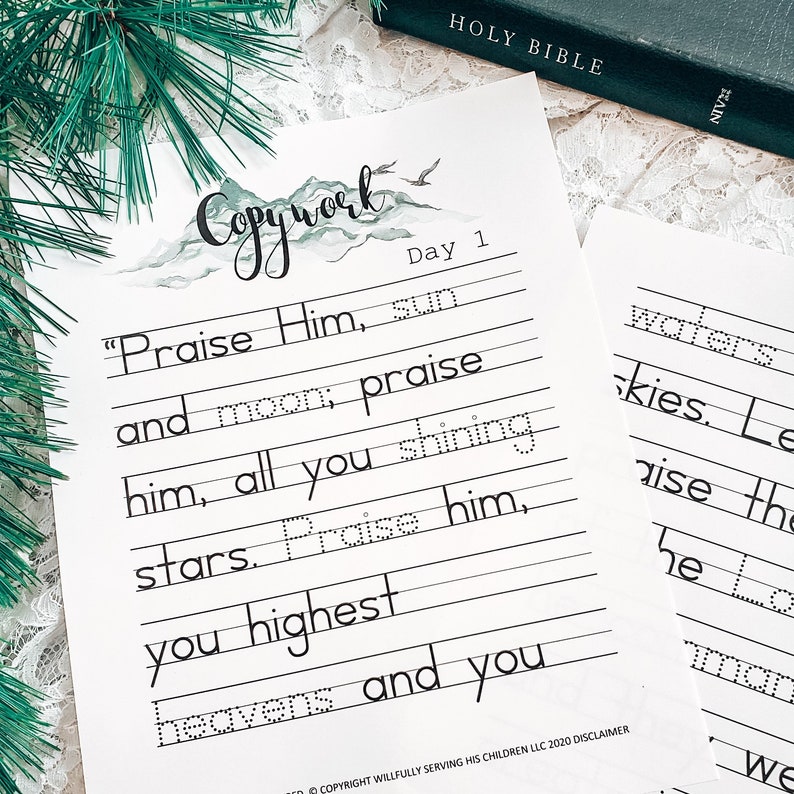 HOLY BIBLE
NIV
Copywork
Day 1
“Praise Him, sun
and moon; praise
him, all you shining
stars. Praise him,
you highest
heavens and you
© COPYRIGHT WILLFULLY SERVING HIS CHILDREN LLC 2020 DISCLAIMER
waters
skies. Le
aise the
he Lo
mman
y we